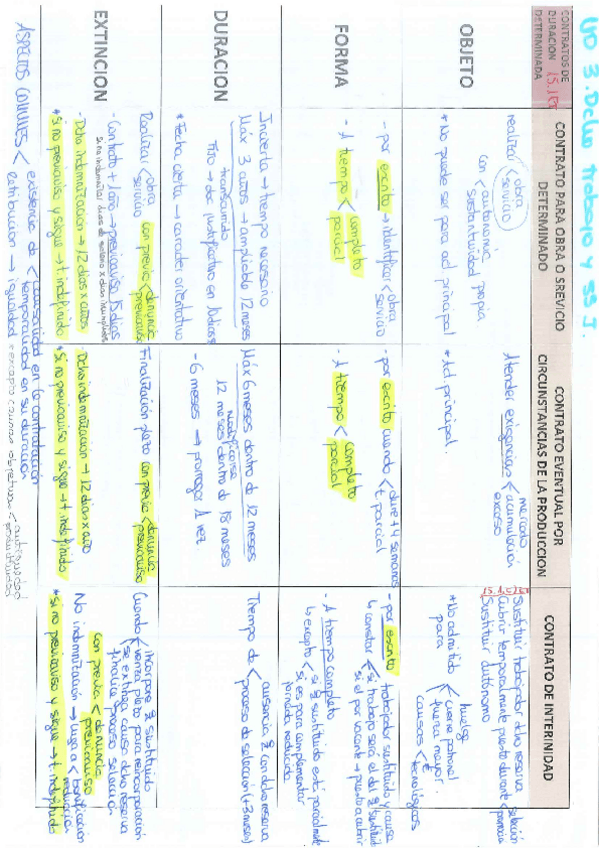 UD 3. Dcho trabajo y SS I.
CONTRATOS DE
DURACION
DETERMINADA
15.1 ET
CONTRATO PARA OBRA O SREVICIO
DETERMINADO
CONTRATO EVENTUAL POR
CIRCUNSTANCIAS DE LA PRODUCCION
CONTRATO DE INTERINIDAD
OBJETO
realizar < obra
servicio
con < autonomía
sustantividad propia
* No puede ser para act principal
Atender exigencias < mercado
acumulación
exceso
* Act principal.
Sustituir trabajador dcho reserva
Cubrir temporalmente puesto durante < selección
promoción
Sustituir autónomo
* No admitido
para
huelga
cierre patronal
fuerza mayor
causas < E
tecnológicas
FORMA
- por escrito → identificar < obra
servicio
- A tiempo < completo
parcial
- por escrito cuando < dure + 4 semanas
t parcial
- A tiempo < completo
parcial
- por escrito
trabajador sustituido y causa
↳ constar < si trabajo será el del sustituido
si el por vacante → puesto a cubrir
- A tiempo completo
↳ excepto < si sustituido está parcialmente
si es para complementar
jornada reducida
DURACION
Incierta → tiempo necesario
Máx 3 años → ampliable 12 meses
transcurrido
* Fecha cierta → caracter orientativo
Máx 6 meses dentro de 12 meses
12 meses dentro de 18 meses
- 6 meses → prorroga 1 vez
Tiempo de < ausencia con dcho reserva
proceso de selección (+3 meses)
EXTINCION
Realizar < obra
servicio
con previa < denuncia
preaviso
- Contrato + 1 año → preaviso 15 días
- Dcho indemnización → 12 días x años
* Si no preaviso y sigue → t. indefinido
Finalización plazo con previa < denuncia
preaviso
- Dcho indemnización → 12 días x año
* Si no preaviso y sigue → t indefinido
Cuando < incorpore sustituido
venza plazo para reincorporación
se extinga causa dcho reserva
finalice proceso selección
con previa < denuncia
preaviso
No indemnización → luego a < bonificación
reducción
* si no preaviso y sigue → t. indefinido
ASPECTOS COMUNES <
existencia de < causalidad en la contratación
temporalidad en su duración
retribución → igualdad * excepto causas objetivas < antigüedad
productividad